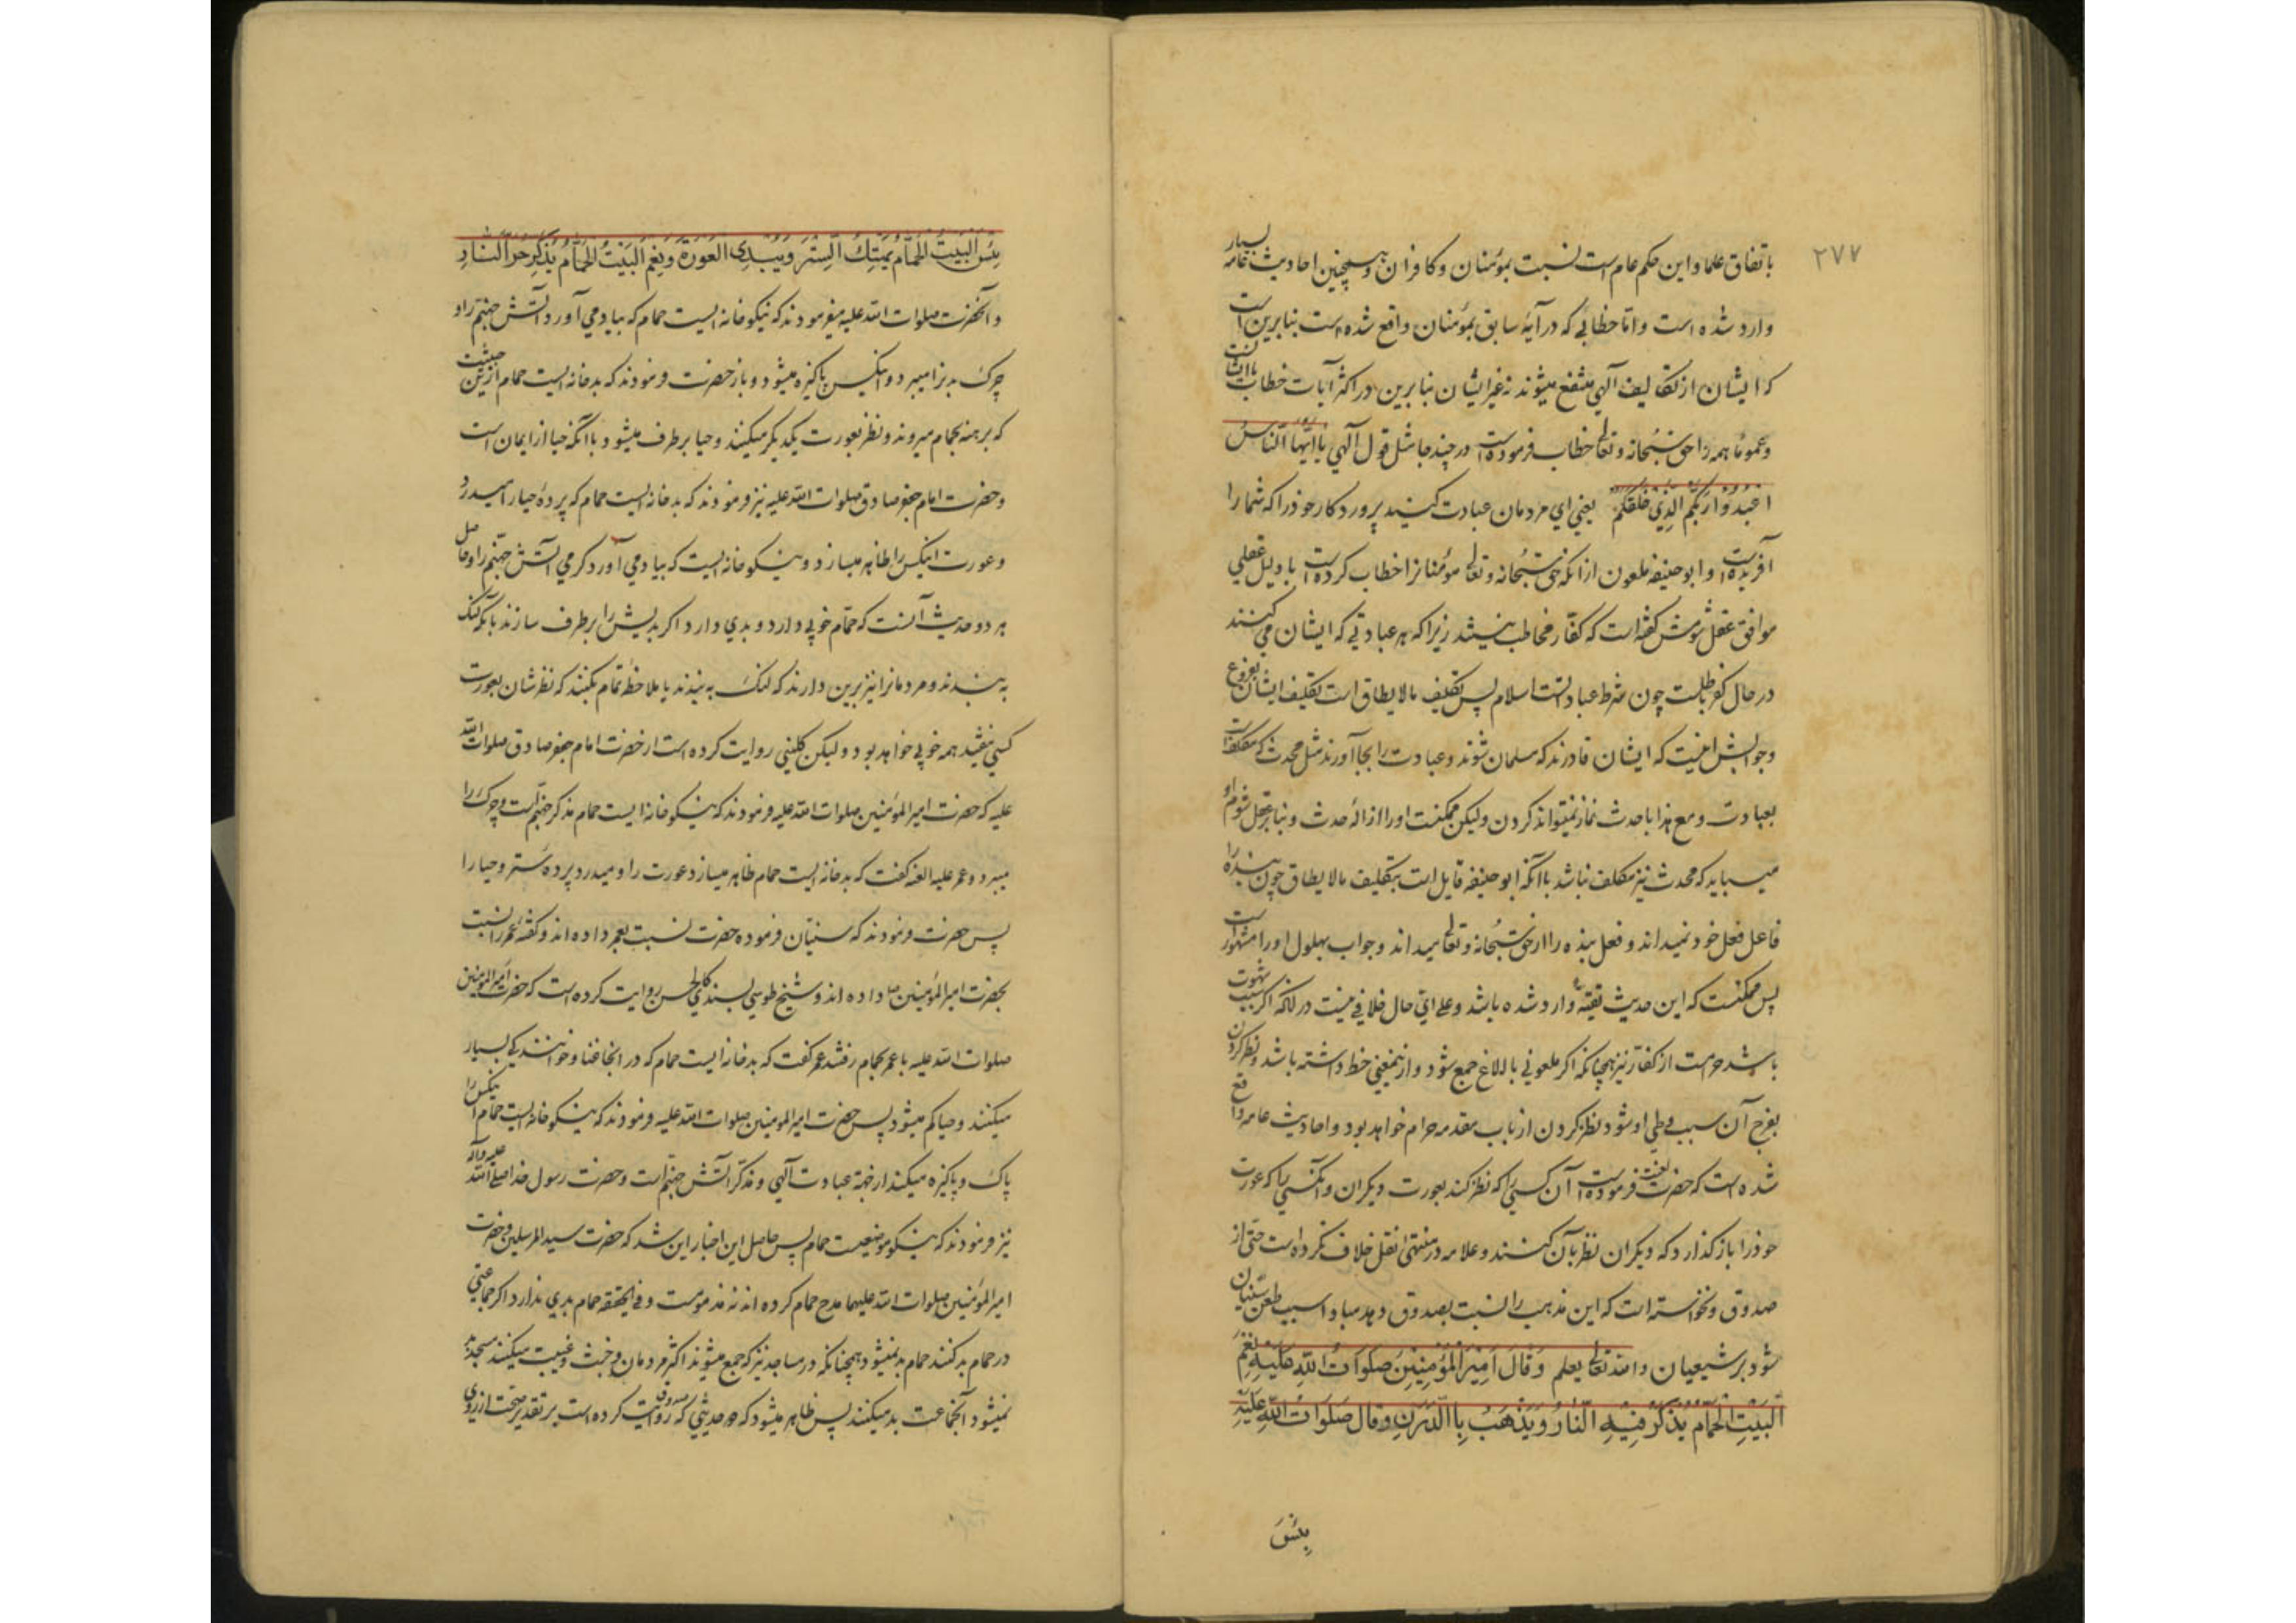 ۲۷۷
باتفاق علما و این حکم عام است نسبت بمؤمنان و کافران و همچنین احادیث بسیار عامه
وارد شده است و اما خطابی که در آیهٔ سابق بمؤمنان واقع شده است بنابرین است
که ایشان از تکالیف الهی منتفع میشوند نه غیر ایشان بنابرین در اکثر آیات خطاب با ایشانست
و عموما همه را حق سبحانه و تعالی خطاب فرموده است در چند جا مثل قول الهی یَا اَیُّهَا النَّاسُ
اعْبُدُوْا رَبَّکُمُ الَّذِیْ خَلَقَکُمْ یعنی ای مردمان عبادت کنید پروردکار خود را که شما را
آفریده است و ابو حنیفه ملعون از آنکه حق سبحانه و تعالی مؤمنانرا خطاب کرده است با دلیل عقلی
موافق عقل شومش کفته است که کفار مخاطب نیستند زیرا که هر عبادتی که ایشان می کنند
در حال کفر باطلست چون شرط عبادتست اسلام پس تکلیف مالا یطاق است تکلیف ایشان بفروع
و جوابش اینست که ایشان قادرند که مسلمان شوند و عبادت را بجا آورند مثل محدث که مکلفست
بعبادت و مع هذا با حدث نماز نمیتواند کردن ولیکن ممکنست او را ازالهٔ حدث و بنا بر عقل شوم او
میباید که محدث نیز مکلف نباشد با آنکه ابو حنیفه قایل است بتکلیف مالا یطاق چون بنده را
فاعل فعل خود نمیداند و فعل بنده را از حق سبحانه و تعالی میداند و جواب بهلول او را مشهور است
پس ممکنست که این حدیث تقیة وارد شده باشد و علی ای حال خلافی نیست در آنکه اکر بسبب شهوت
باشد حرمست از کفار نیز همچنانکه اکر ملعونی با الاغ جمع شود و ازین معنی حظ داشته باشد و نظر کردن
بفرج آن سبب وطی او شود نظر کردن از باب مقدمه حرام خواهد بود و احادیث عامه واقع
شده است که حضرت لعنت فرموده است آن کسی را که نظر کند بعورت دیکران و آنکسی را که عورت
خود را باز کذارد که دیکران نظر بآن کنند و علامه در منتهی نقل خلاف نکرده است حتی از
صدوق و نخواسته است که این مذهب را نسبت بصدوق دهد مبادا سبب طعن سنیان
شود بر شیعیان و الله تعالی یعلم وَ قَالَ اَمِیْرُ الْمُؤْمِنِیْنَ صَلَوَاتُ اللّٰهِ عَلَیْهِ نِعْمَ
الْبَیْتُ الْحَمَّامُ یُذْکَرُ فِیْهِ النَّارُ وَ یَذْهَبُ بِالدَّرَنِ وَ قَالَ صَلَوَاتُ اللّٰهِ عَلَیْهِ
بِئْسَ
بِئْسَ الْبَیْتُ الْحَمَّامُ یَهْتِکُ السِّتْرَ وَ یُبْدِی الْعَوْرَةَ وَ نِعْمَ الْبَیْتُ الْحَمَّامُ یُذَکِّرُ حَرَّ النَّارِ
و آنحضرت صلوات الله علیه میفرمودند که نیکو خانه ایست حمام که بیاد می آورد آتش جهنم را و
چرک بدنرا میبرد و آنکس پاکیزه میشود و باز حضرت فرمودند که بد خانه ایست حمام ازین حیثیت
که برهنه بحمام میروند و نظر بعورت یکدیکر میکنند و حیا برطرف میشود با آنکه حیا از ایمان است
و حضرت امام جعفر صادق صلوات الله علیه نیز فرمودند که بد خانه ایست حمام که پردهٔ حیا را میدرد
و عورت اینکس را ظاهر میسازد و نیکو خانه ایست که بیاد می آورد کرمی آتش جهنم را و حاصل
هر دو حدیث آنست که حمام خوبی دارد و بدی دارد اکر بدیش را برطرف سازند بآنکه لنک
به بندند و مردمانرا نیز برین دارند که لنک به بندند یا ملاحظهٔ تمام بکنند که نظر شان بعورت
کسی نیفتد همه خوبی خواهد بود و لیکن کلینی روایت کرده است از حضرت امام جعفر صادق صلوات الله
علیه که حضرت امیر المؤمنین صلوات الله علیه فرمودند که نیکو خانه ایست حمام مذکر جهنم است و چرک را
میبرد و عمر علیه اللعنه کفت که بد خانه ایست حمام ظاهر میسازد عورت را و میدرد پردهٔ ستر و حیا را
پس حضرت فرمودند که سنیان فرمودهٔ حضرت نسبت بعمر داده اند و کفتهٔ عمر را نسبت
بحضرت امیر المؤمنین داده اند و شیخ طوسی بسند کالحسن روایت کرده است که حضرت امیر المؤمنین
صلوات الله علیه با عمر بحمام رفتند عمر کفت که بد خانه ایست حمام که در آنجا عنا و خوانندکی بسیار
میکنند و حیا کم میشود پس حضرت امیر المؤمنین صلوات الله علیه فرمودند که نیکو خانه ایست حمام اینکس را
پاک و پاکیزه میکند از جهة عبادت آلهی و مذکر آتش جهنم است و حضرت رسول خدا صلی الله علیه و آله
نیز فرمودند که نیکو موضعیست حمام پس حاصل این اخبار این شد که حضرت سید المرسلین و حضرت
امیر المؤمنین صلوات الله علیهما مدح حمام کرده اند نه مذمت و فی الحقیقه حمام بدی ندارد اکر جماعتی
در حمام بد کنند حمام بد نمیشود همچنانکه در مساجد نیز که جمع میشوند اکثر مردمان و خبث و غیبت میکنند مسجد بد
نمیشود آنجماعت بد میکنند پس ظاهر میشود که هر حدیثی که صدوق روایت کرده است بر تقدیر صحت از روی